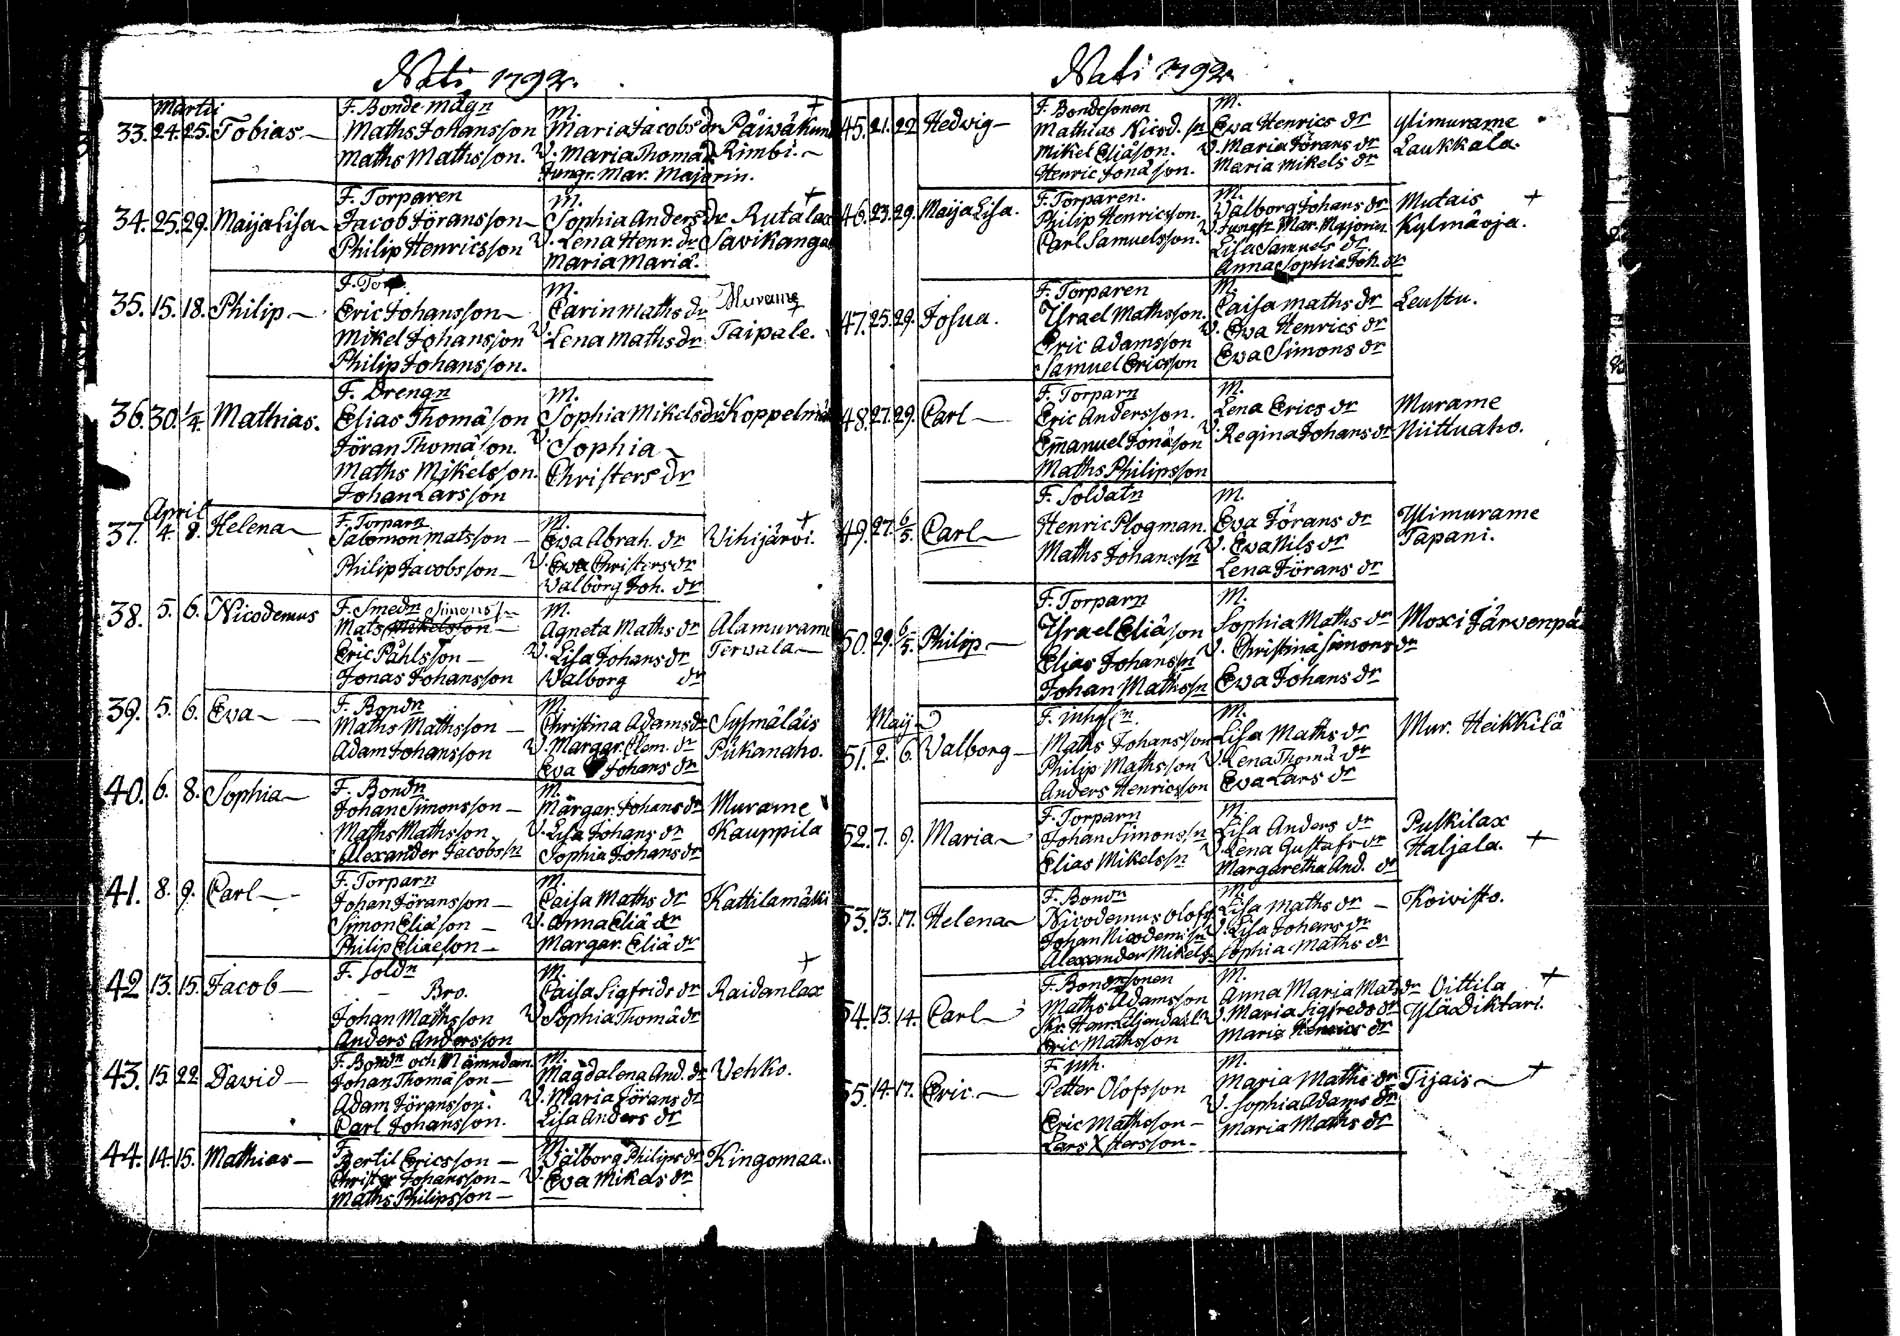 Nati 1792.
Martii
33. 24. 25. Tobias
F. Bonde mågn
Maths Johansson
Maths Mathsson.
M.
Maria Jacobs dr
V. Maria Thomæ dr
Jungr. Mar. Majorin.
+
Päiväkun
Rimbi.
34. 25. 29. Maija Lisa
F. Torparen
Jacob Jöransson
Philip Henricsson
M.
Sophia Anders dr
V. Lena Henr. dr
Maria Mariä.
+
Rutalax
Savikanga
35. 15. 18. Philip
F. Torp
Eric Johansson
Mikel Johansson
Philip Johansson.
M.
Carin Maths dr
V. Lena Maths dr
Murame
+
Taipale.
36. 30. 1/4. Mathias.
F. Drengn
Elias Thomäson
Jöran Thomäson.
Maths Mikelsson.
Johan Larsson
M.
Sophia Mikels dr
V. Sophia
Christers dr
Koppelmä
April
37. 4. 8. Helena
F. Torparn
Salomon Matsson
Philip Jacobsson
M.
Eva Abrah. dr
V. Eva Christers dr
Valborg Joh. dr
+
Vihijärvi.
38. 5. 6. Nicodemus
F. Smedn Simonss
Mats Mikelsson
Eric Påhlsson
Jonas Johansson
M.
Agneta Maths dr
V. Lisa Johans dr
Valborg dr
Alamurame
Tervala
39. 5. 6. Eva
F. Bondn
Maths Mathsson
Adam Johansson
M.
Christina Adams dr
V. Margar. Clem. dr
Eva Johans dr
Sysmäläis
Pukanaho.
40. 6. 8. Sophia
F. Bondn
Johan Simonsson
Maths Mathsson
Alexander Jacobssn
M.
Margar. Johans dr
V. Lisa Johans dr
Sophia Johans dr
Murame
Kauppila
41. 8. 9. Carl
F. Torparn
Johan Jöransson
Simon Eliäson
Philip Eliæson
M.
Caisa Maths dr
V. Anna Eliä dr
Margar. Eliä dr
Kattilamäki
42. 13. 15. Jacob
F. Soldn
Bro.
Johan Mathsson
Anders Andersson
M.
Caisa Sigfrids dr
V. Sophia Thomä dr
+
Raidanlax
43. 15. 22 David
F. Bondn och Nämndem.
Johan Thomäson
Adam Jöransson.
Carl Johansson.
M.
Magdalena And. dr
V. Maria Jörans dr
Lisa Anders dr
Vehko.
44. 14. 15. Mathias
F.
Bertil Ericsson
Christer Johansson
Maths Philipsson
M.
Valborg Philips dr
V. Eva Mikels dr
Kingomaa.
Nati 1792.
45. 21. 22 Hedvig
F. Bondesonen
Mathias Nicod. sn
Mikel Eliäson.
Henric Jonäson.
M.
Eva Henrics dr
V. Maria Jörans dr
Maria Mikels dr
Ylimurame
Laukkala.
46. 23. 29. Maija Lisa.
F. Torparen.
Philip Henricsson.
Carl Samuelsson.
M.
Valborg Johans dr
V. Jungfr Mar. Majorin
Lisa Samuels dr.
Anna Sophia Joh. dr
Mutais +
Kylmäoja.
47. 25. 29. Josua.
F. Torparen
Israel Mathsson.
Eric Adamsson
Samuel Ericsson
M.
Caisa Maths dr
V. Eva Henrics dr
Eva Simons dr
Leustu.
48. 27. 29. Carl
F. Torparn
Eric Andersson.
Emanuel Jonäson
Maths Philipsson
M.
Lena Erics dr
V. Regina Johans dr
Murame
Niittuaho.
49. 27. 6/5 Carl
F. Soldatn
Henric Plogman.
Maths Johanssn
M.
Eva Jörans dr
V. Eva Nils dr
Lena Jörans dr
Ylimurame
Tapani.
50. 29. 6/5. Philip
F. Torparn
Israel Eliäson
Elias Johanssn
Johan Mathssn
M.
Sophia Maths dr
V. Christina Simons dr
Eva Johans dr
Moxi Järvenpä
Maij
51. 2. 6. Valborg
F. inhysn.
Maths Johansson
Philip Mathsson
Anders Henricsson
M.
Lisa Maths dr
V. Lena Thomä dr
Eva Lars dr
Mur. Heikkilä
52. 7. 9. Maria
F. Torparn
Johan Simonssn
Elias Mikelssn
M.
Lisa Anders dr
V. Lena Gustafs dr
Margaretha And. dr
Putkilax
Haljala. +
53. 13. 17. Helena
F. Bondn
Nicodemus Olofss
Johan Nicodemi sn
Alexander Mikelss
M.
Lisa Maths dr
V. Lisa Johans dr
Sophia Maths dr
Koivisto.
54. 13. 14. Carl
F. Bondesonen
Maths Adamsson
Eric Mathsson
M.
Anna Maria Mats dr
V. Maria Sigfreds dr
Maria Henrics dr
Oittila +
Ylä Diktari.
55. 14. 17. Eric.
F. inh.
Petter Olofsson
Eric Mathsson
Lars Xstersson
M.
Maria Maths dr
V. Sophia Adams dr
Maria Maths dr
Tijais +